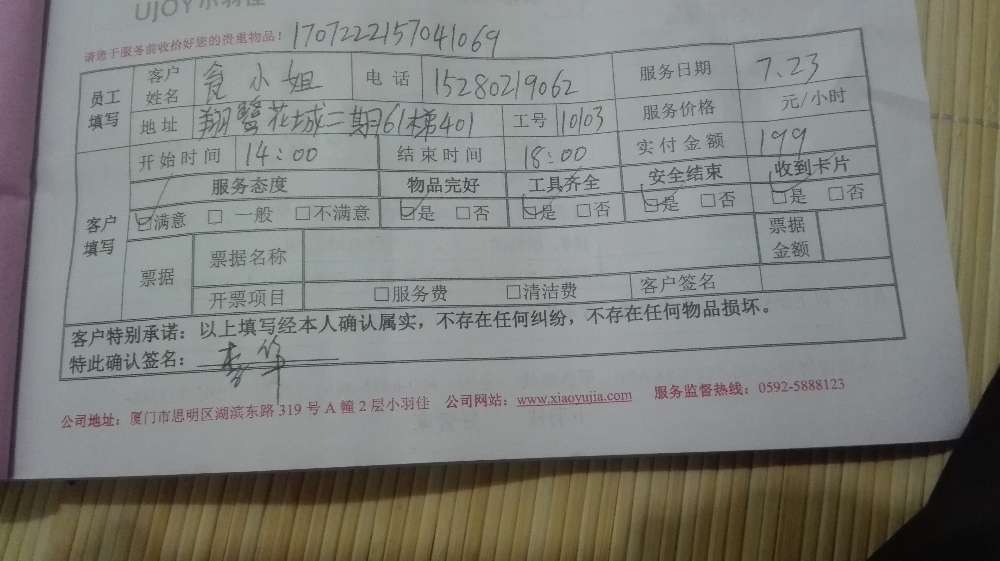 UJOY小羽佳
请您于服务前收拾好您的贵重物品！1707222157041069
员工填写 客户姓名 小姐 电话 15280219062 服务日期 7.23
地址 翔鹭花城二期61梯401 工号 10103 服务价格 元/小时
开始时间 14:00 结束时间 18:00 实付金额 199
客户填写 服务态度 物品完好 工具齐全 安全结束 收到卡片
☑满意 □一般 □不满意 ☑是 □否 ☑是 □否 ☑是 □否 ☑是 □否
票据 票据名称 票据金额
开票项目 □服务费 □清洁费 客户签名
客户特别承诺：以上填写经本人确认属实，不存在任何纠纷，不存在任何物品损坏。
特此确认签名：
公司地址：厦门市思明区湖滨东路319号A幢2层小羽佳 公司网站：www.xiaoyujia.com 服务监督热线：0592-5888123